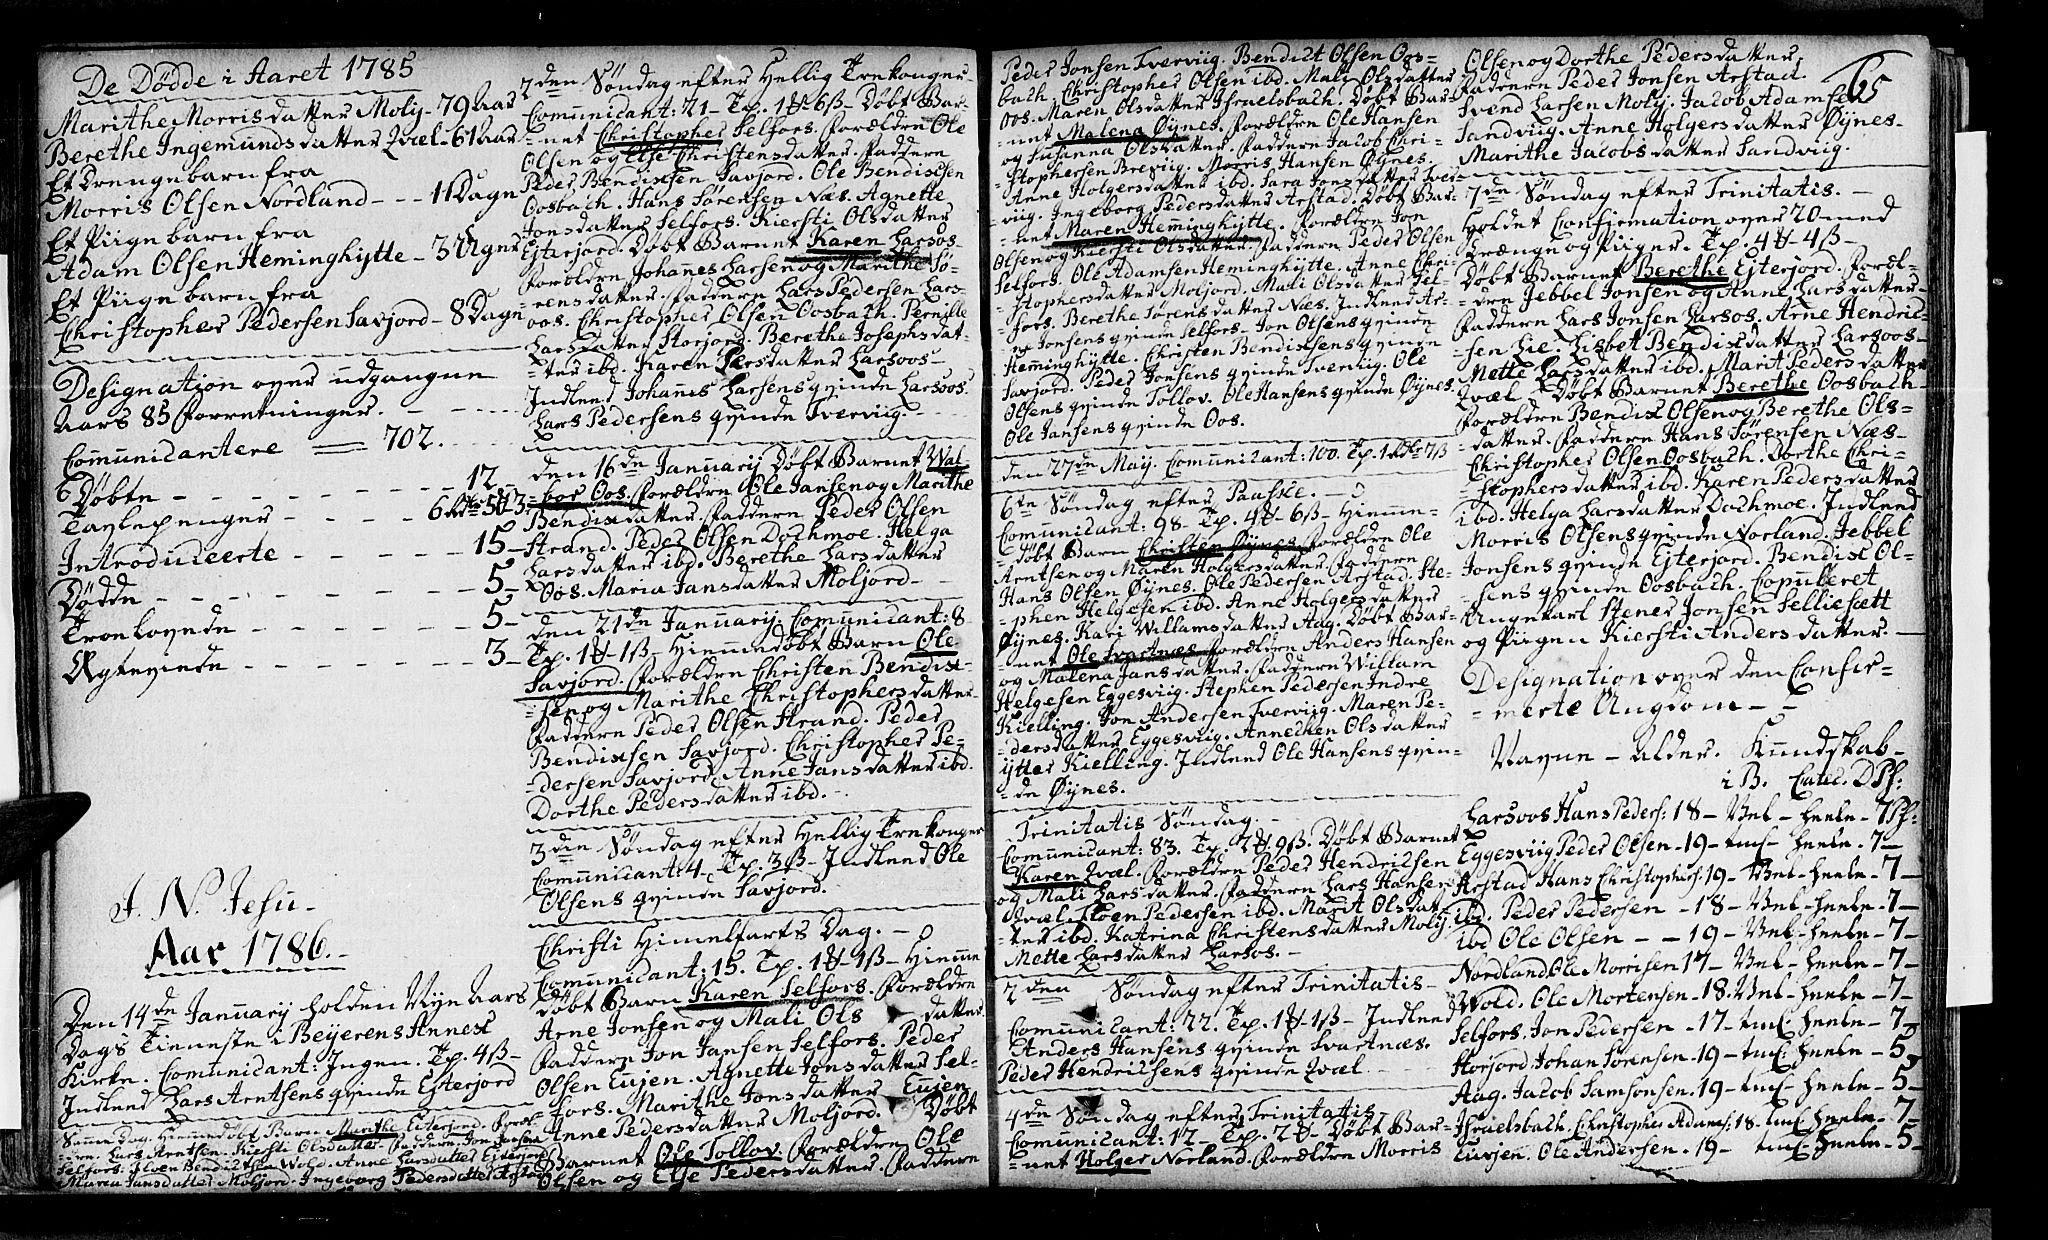 De Dödde i Aaret 1785
Marithe Morrisdatter Molij - 79 Aar
Berethe Ingemundsdatter Qvæl - 61 Aar
Et Drengebarn fra
Morris Olsen Nordland - - - 11 Dage
Et Piigebarn fra
Adam Olsen Heminghÿtte - 3 Uger
Et Piigebarn fra
Christopher Pedersen Savjord - 8 Dage
Designation over udgangne
Aars 85 Forretninger.
Communicantere = 702.
Döbte - - - - 12 -
Tavlepenger - - - - 6
Introduceerte - - - - 15 -
Dödde - - - - 5 -
Troelovede - - - - 5 -
Ægteviede - - - - 3 -
J. N. Jesu -
Aar 1786. -
Den 14de Januarij holden Nÿe Aars
Dags Tieneste i Beijerens Annex
Kirke. Comunicant: Ingen. Tp. 4ß -
Indleed Lars Arntsens qvinde Eiterjord
Samme Dag. Hiemmedöbt Barn Marithe Eiterjord. Foræl-
dren. Lars Arntsen. Kiersti Olsdatter. Faddern Jon Jensen
Selfors. Bendixsen Wold. Anne Larsdatter Eiterjord
Maren Jansdatter Moljord. Ingeborg Pedersdatter Arstad
2den Söndag efter Hellig Trekonger -
Comunicant: 21 - Tp. 1 6ß - Döbt Bar-
-net Christopher Selfors. Forældre Ole
Olsen og Else Christensdatter. Faddern
Peder Bendixsen Savjord. Ole Bendixsen
Oosbach. Hans Sörensen Næs. Agnette
Jonsdatter Selfors. Kiersti Olsdatter
Ejterjord. Döbt Barnet Karen Larsos -
Forældren Johannes Larsen og Marithe Sö-
rensdatter. Faddern Lars Pedersen Lars-
oos. Christopher Olsen Oosbach. Pernille
Larsdatter Storjord. Berethe Josephsdat-
-ter ibd. Karen Larsdatter Larsoos -
Indleed Johannes Larsens qvinde Larsoos.
Lars Pedersens qvinde Tverviig. -
den 16de Januarij Döbt Barnet Wal-
-bor Oos. Forældren Ole Jansen og Marithe
Bendixdatter. Faddern Peder Olsen
Strand. Peder Olsen Dochmoe. Helga
Larsdatter ibd. Berethe Larsdatter
Oos. Maria Jansdatter Moljord -
den 21de Januarij: Comunicant: 8
Tp. 1 1ß - Hiemmedöbt Barn Ole
Savjord. Forældren Christen Bendix-
-sen og Marithe Christophersdatter
Faddern Peder Olsen Strand. Peder
Bendixsen Savjord. Christopher Pe-
-dersen Savjord. Anne Jansdatter ibd.
Dorthe Pedersdatter ibd. -
3die Söndag efter Hellig Trekonger
Comunicant: 4 - Tp. 3ß - Indleed Ole
Olsens qvinde Savjord. -
Christi Himelfarts Dag. -
Comunicant: 15. Tp. 1 1ß - Hiemme
Döbt Barn Karen Selfors. Forældre
Arne Jonsen og Mali Ols datter
Faddern Jon Jansen Selfors. Peder
Olsen Eujen. Agnette Jonsdatter Sel-
fors. Marithe Jonsdatter Eujen
Anne Pedersdatter Moljord. Döbt
Barnet Ole Tollov. Forældre Ole
Olsen og Else Pedersdatter. Faddern
Peder Jonsen Tverviig. Bendict Olsen Oos-
bach. Christopher Olsen ibd. Mali Olsdatter
Oos. Maren Olsdatter Israelsbach. Döbt Bar-
-net Malena Öÿnes. Forældre Ole Hansen
og Susanna Olsdatter. Faddern Jacob Chri-
stophersen Breviig. Morris Hansen Öÿnes.
Anne Holgersdatter ibd. Sara Jonsdatter Tver-
viig. Ingeborg Pedersdatter Arstad. Döbt Bar-
-net Maren Heminghÿtte. Forældre Jon
Olsen og Kiersti Olsdatter. Faddern Peder Olsen
Selfors. Ole Adamsen Heminghÿtte. Anne Chri-
stophersdatter Moljord. Mali Olsdatter Sel-
fors. Berethe Sörensdatter Næs. Indleed Ar-
ne Jonsens qvinde Selfors. Jon Olsens qvinde
Heminghÿtte. Christen Bendixsens qvinde
Savjord. Peder Jonsens qvinde Tverviig. Ole
Olsens qvinde Tollov. Ole Hansens qvinde Öÿnes.
Ole Jansens qvinde Oos.
den 27de Maij. Comunicant: 100. Tp. 1 7ß
6te Söndag efter Paaske. -
Comunicant: 98 - Tp. 4 6ß - Hiemme-
döbt Barn Christen Öÿnes. Forældre Ole
Arntsen og Maren Holgersdatter. Faddern
Hans Olsen Öÿnes. Ole Pedersen Arstad. Ste-
-phen Helgesen ibd. Anne Holgersdatter
Öÿnes. Kari Willamsdatter Aag. Döbt Bar-
-net Ole Svartnæs. Forældre Anders Hansen
og Malena Jansdatter. Faddern Willam
Helgesen Eggesviig. Stephen Pedersen Indre
Kielling. Jon Andersen Tverviig. Maren Pe-
-dersdatter Eggesviig. Annechen Olsdatter
ÿtter Kielling. Indleed Ole Hansens qvin-
-de Öÿnes.
Trinitatis Söndag -
Comunicant: 83. Tp. 2 9ß. Döbt Barnet
Karen Qvæl. Forældre Peder Hendricsen
og Mali Larsdatter. Faddern Lars Hansen
Qvæl. Pedersen ibd. Marit Olsdat-
-ter ibd. Katrina Christensdatter Molij.
Mette Larsdatter Larsos. -
2den Söndag efter Trinitatis -
Comunicant: 22. Tp. 1 1ß - Indleed
Anders Hansens qvinde Svartnæs.
Peder Hendricsens qvinde Qvæl
4de Söndag efter Trinitatis
Comunicant: 17 - Tp. 2 - Döbt Bar-
-net Holger Norland. Forældre Morris
65
Olsen og Dorthe Pedersdatter
Faddern Peder Jonsen Arstad.
Svend Larsen Molij. Jacob Adamsen
Sandviig. Anne Holgersdatter Öÿnes -
Marithe Jacobsdatter Sandviig.
7de Söndag efter Trinitatis. -
Holdet Confirmation over 20 med
Drænge og Piiger. Tp. 4 4ß -
Döbt Barnet Berethe Ejterjord. Foræl-
-dre Jebbel Jonsen og Anne Larsdatter -
Faddern Lars Jonsen Larsos. Arne Hendric-
-sen Lie. Lisbet Bendixdatter Larsoos -
Mette Larsdatter ibd. Marit Pedersdatter
Qvæl - Döbt Barnet Berethe Oosbach -
Forældren Bendix Olsen og Berethe Ols-
-datter. Faddern Hans Sörensen Næs -
Christopher Olsen Oosbach. Dorthe Chri-
-stophersdatter ibd. Karen Pedersdatter
ibd. Helga Larsdatter Dochmoe. Indleed
Morris Olsens qvinde Norland. Jebbel
Jonsens qvinde Ejterjord. Bendix Ol-
-sens qvinde Oosbach. Copuleret
Ungekarl Stener Jonsen Selliesætt
og Piigen Kiersti Andersdatter. -
Designation over den Confir-
-merte Ungdom - -
Navne - Alder. Kundskab -
i B. Catec. D Ps:
Larsoos Hans Peders: 18 - Vel - heele - 7 Ps:
Eggesviig Peder Olsen - 19 - tml - heele - 7 -
Arstad Hans Christophers: 19 - Vel - heele - 7 -
ibd. Peder Pedersen - 18 - Vel - heele - 7 -
ibd Ole Olsen - - 19 - Vel - heele - 7 -
Nordland Ole Morrisen 17 - Vel - heele - 7 -
Wold. Ole Mortensen - 18. Vel - heele - 7 -
Selfors. Jon Pedersen - 17 - tml heele - 7 -
Storjord. Johan Sörensen. 19 - tml: heele - 5 -
Aag. Jacob Samsonsen. 19 - tml - heele - 5 -
Israelsbach. Christopher Adams: 18. tml heele - 7 -
Eursen. Ole Andersen. 19 - tml heele - 5 -